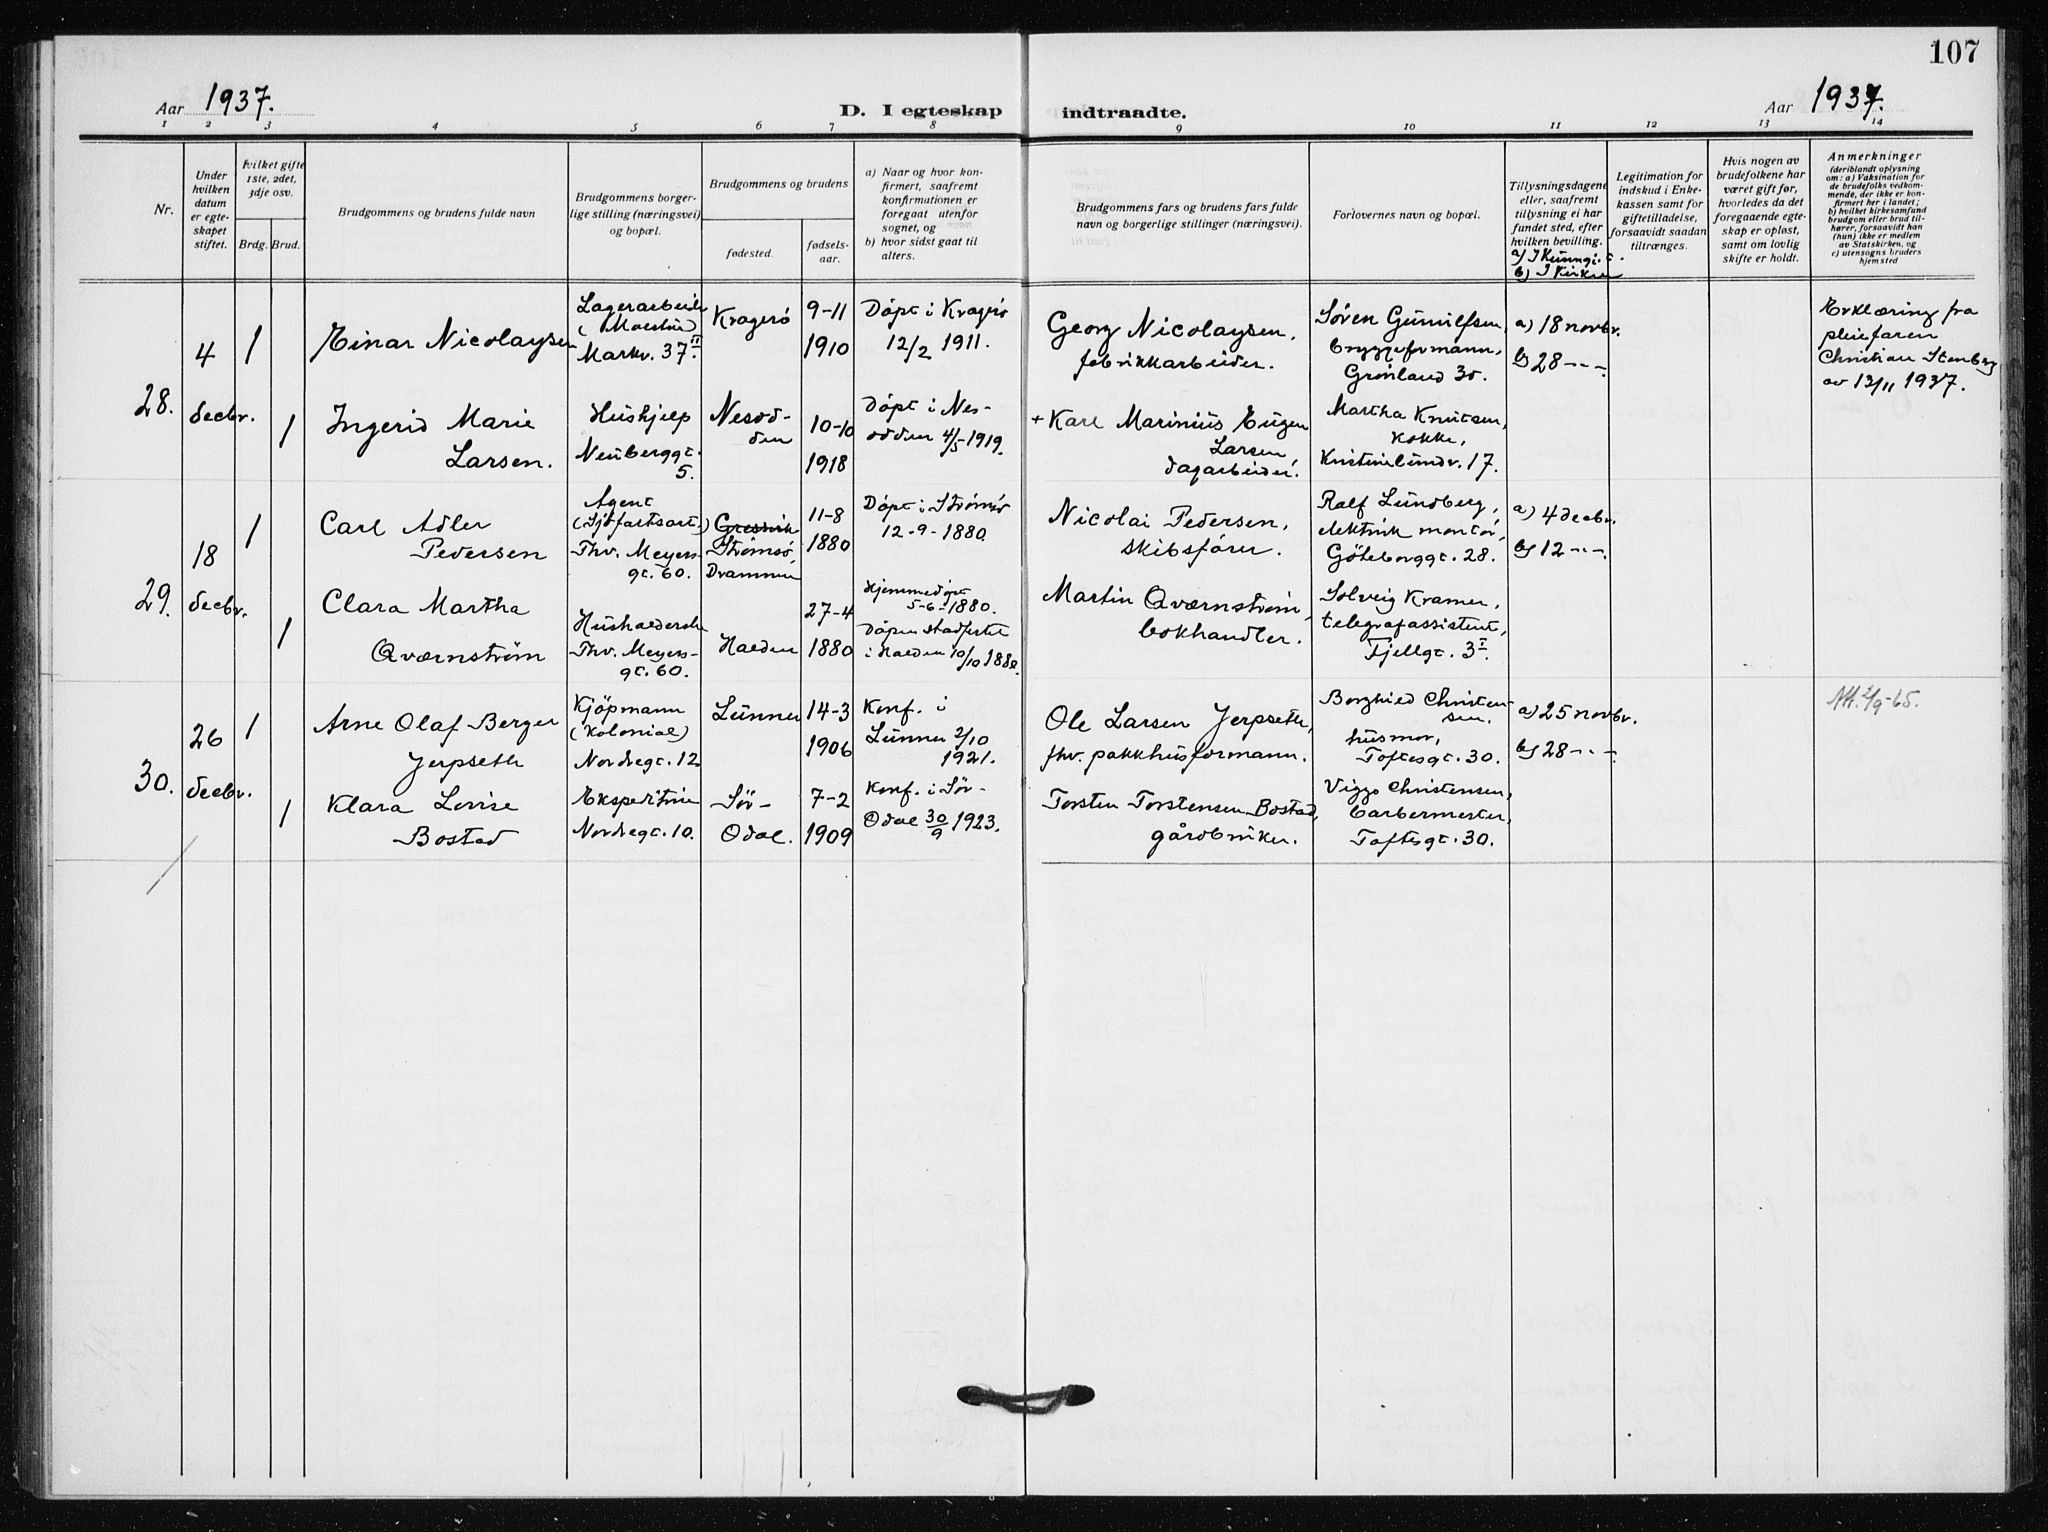 107
Aar 1937.
D. I egteskap indtraadte.
Aar 1937.
1 2 3 4 5 6 7 8 9 10 11 12 13 14
Nr.
Under
hvilken
datum
er egte-
skapet
stiftet.
Hvilket gifte
1ste, 2det,
3dje osv.
Brdg. Brud.
Brudgommens og brudens fulde navn
Brudgommens borger-
lige stilling (næringsvei)
og bopæl.
Brudgommens og brudens
fødested.
fødsels-
aar.
a) Naar og hvor kon-
firmert, saafremt
konfirmationen er
foregaat utenfor
sognet, og
b) hvor sidst gaat til
alters.
Brudgommens fars og brudens fars fulde
navn og borgerlige stillinger (næringsvei).
Forlovernes navn og bopæl.
Tillysningsdagene
eller, saafremt
tillysning ei har
fundet sted, efter
hvilken bevilling.
a) I Kunngj.
b) I Kirken
Legitimation for
indskud i Enke-
kassen samt for
giftetilladelse,
forsaavidt saadan
tiltrænges.
Hvis nogen av
brudefolkene har
været gift før,
hvorledes da det
foregaaende egte-
skap er opløst,
samt om lovlig
skifte er holdt.
Anmerkninger
(deriblandt oplysning
om: a) Vaksination for
de brudefolks vedkom-
mende, der ikke er kon-
firmert her i landet;
b) hvilket kirkesamfund
brudgom eller brud til-
hører, forsaavidt han
(hun) ikke er medlem
av Statskirken, og
c) utensogns bruders
hjemsted
28.
4
decbr.
1
Einar Nicolaysen
Lagerarbeider
Markv. 37 II.
Kragerö
9-11
1910
Döpt i Kragerö
12/2 1911.
Georg Nicolaysen,
fabrikkarbeider.
Sören Gunulfsen,
bryggeformann,
Grönland 30.
a) 18 novbr.
b) 28 - - -
Erklæring fra
pleiefaren
Christian Stenberg
av 13/11 1937.
1
Ingerid Marie
Larsen.
Hushjelp
Neuberggt.
5.
Nesod-
den
10-10
1918
Döpt i Nes-
odden 4/5-1919.
+ Karl Marinius Eugen
Larsen,
dagarbeider.
Martha Knutsen,
kokke,
Kristinelundv. 17.
29.
18
decbr.
1
Carl Adler
Pedersen
Agent
Thv. Meyers-
gt. 60.
Strömsö
Drammen
11-8
1880
Döpt i Strömsö
12-9-1880.
Nicolai Pedersen,
skibsfører.
Ralf Lundberg,
elektrisk montör,
Göteborggt. 28.
a) 4 decbr.
b) 12 - - -
1
Clara Martha
Qværnström
Husholderske
Thv. Meyers-
gt. 60.
Halden
27-4
1880
Hjemmedöpt
5-6-1880.
Dåpen stadfestet
i Halden 10/10 1880.
Martin Qværnström,
bokhandler.
Solveig Kramer,
telegrafassistent,
Fjellgt. 3 I.
30.
26
decbr.
1
Arne Olaf Berger
Jerpseth
Kjöpmann
(Kolonial)
Nordregt. 12
Lunner
14-3
1906
Konf. i
Lunner 2/10
1921.
Ole Larsen Jerpseth,
fhv. pakkhusformann.
Borghild Christen-
sen.
husmor,
Toftesgt. 30.
a) 25 novbr.
b) 28 - - -
1
Klara Lovise
Bostad
Ekspeditrise
Nordregt. 10.
Sör-
Odal.
7-2
1909
Konf. i Sör-
Odal 30/9 1923.
Torsten Torstensen Bostad,
gårdbruker.
Viggo Christensen,
barbermester,
Toftesgt. 30.